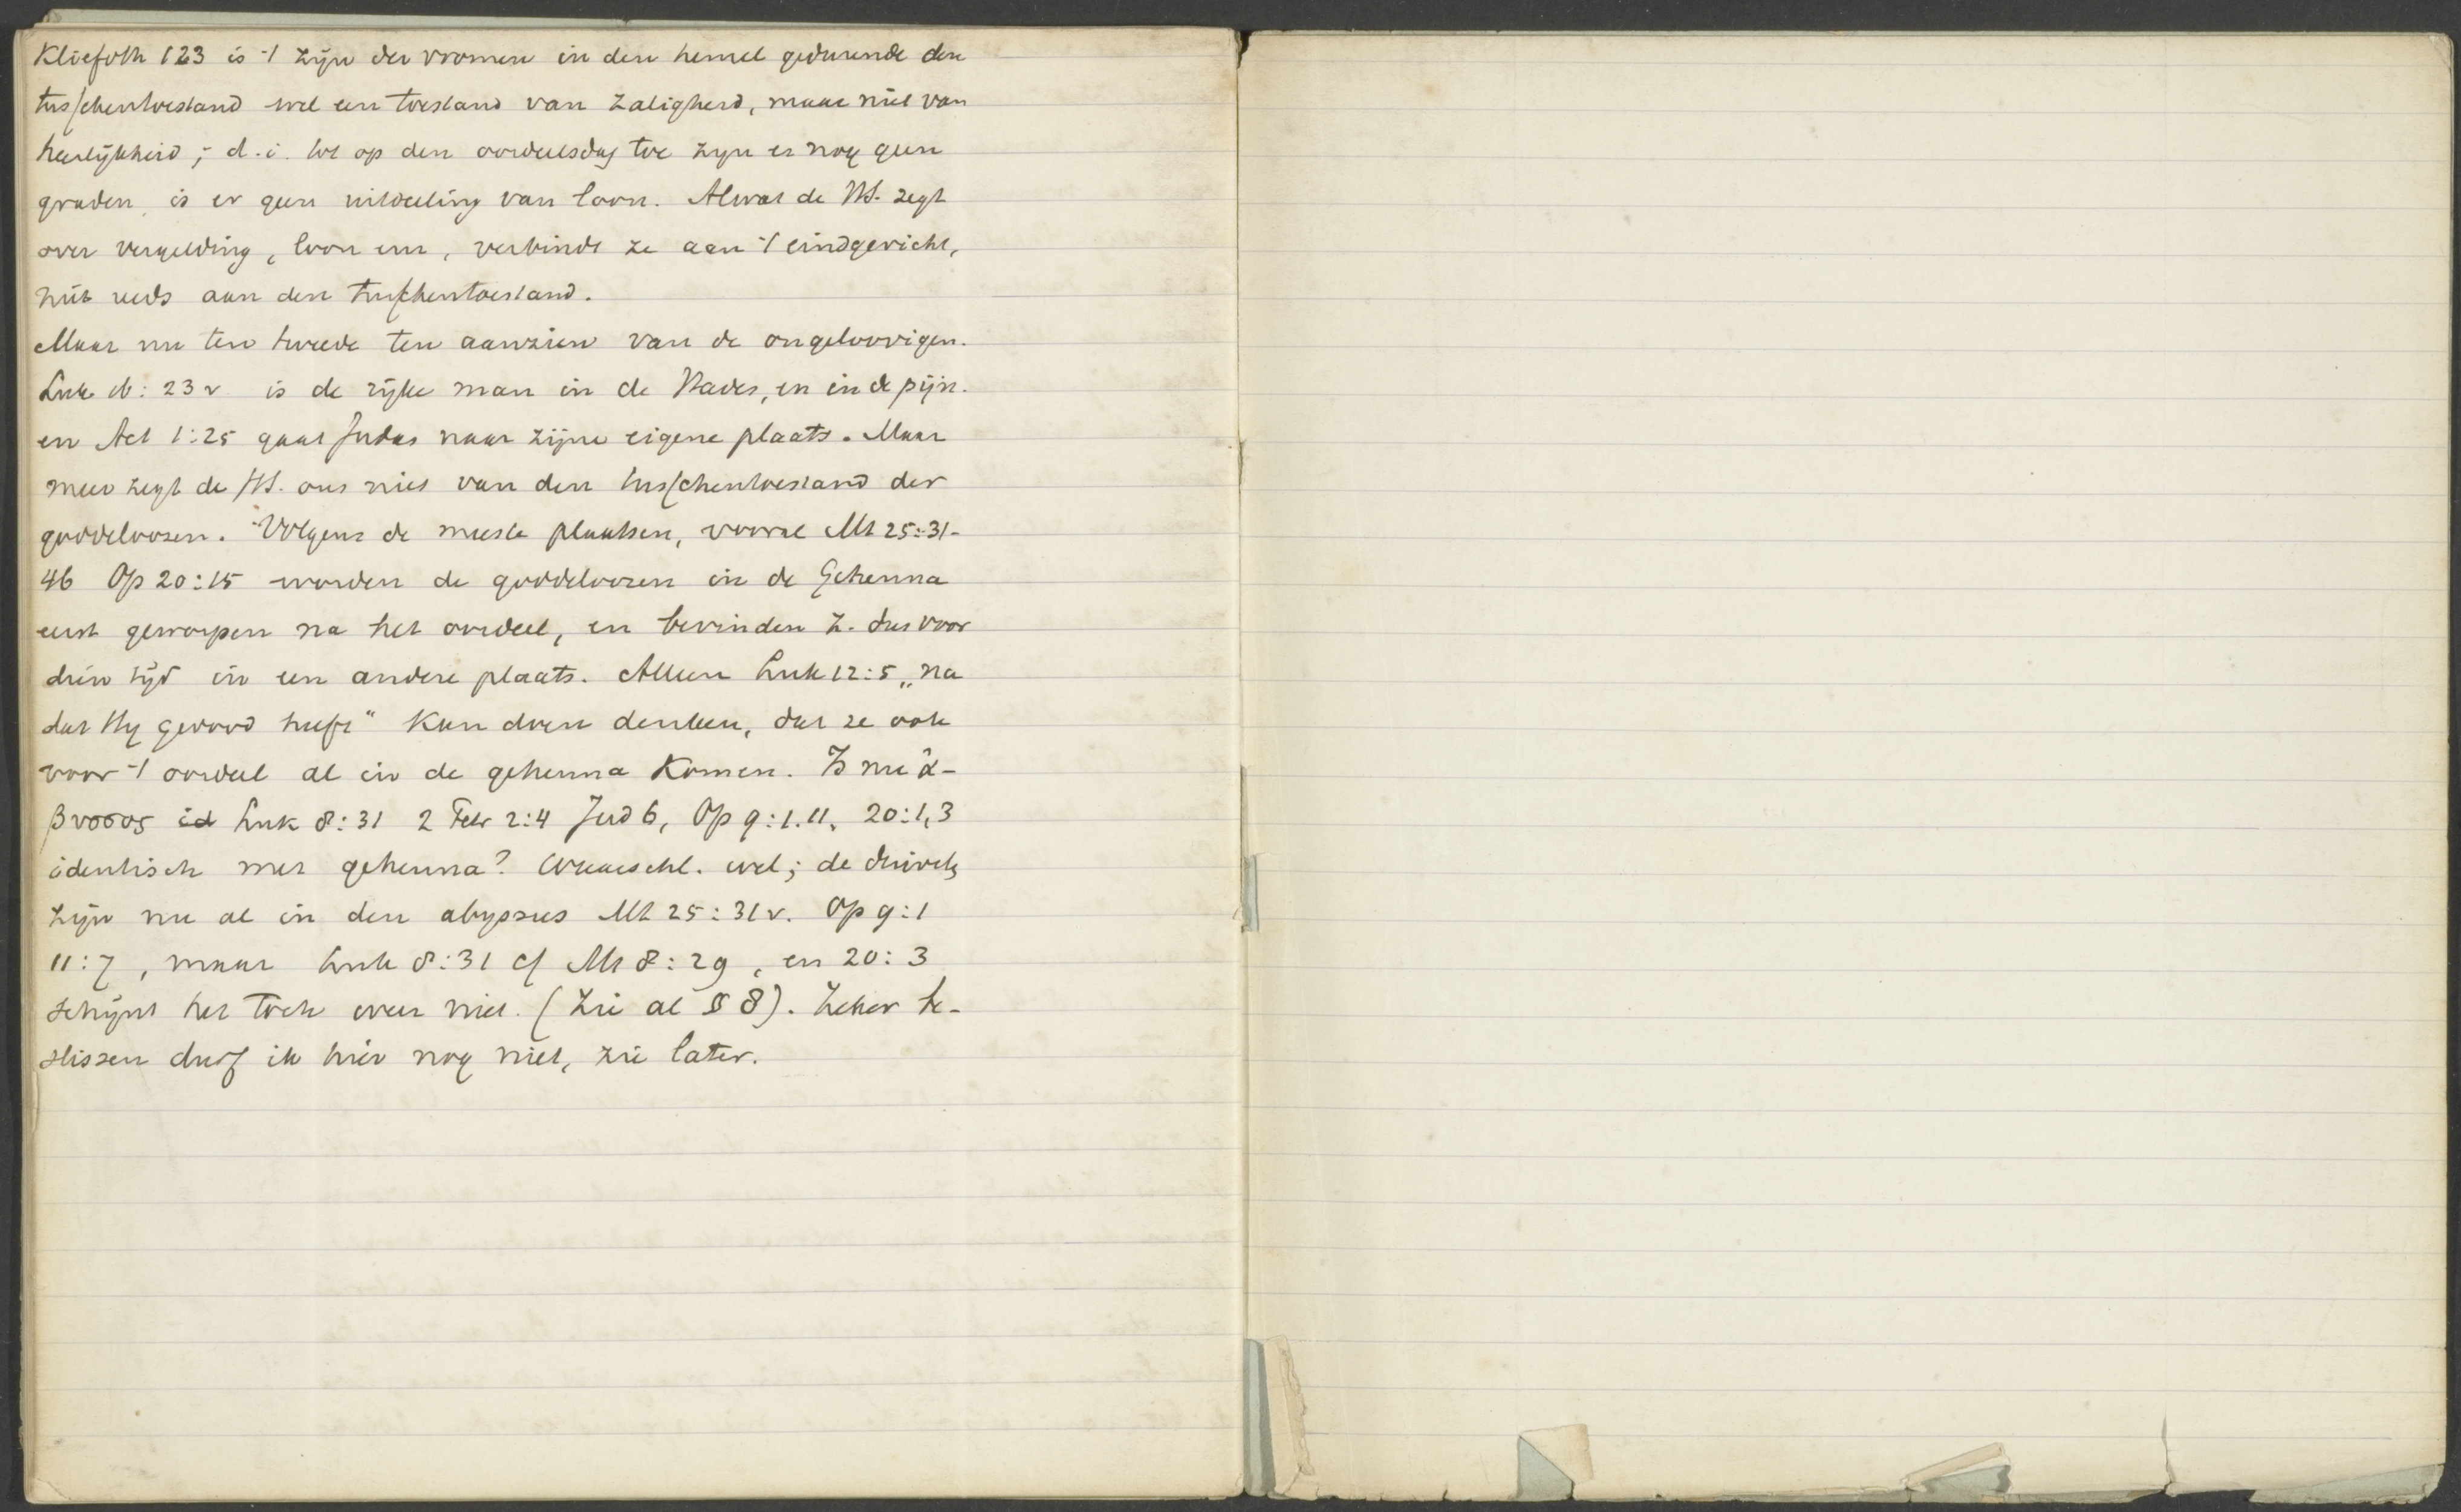 Kliefoth 123 is 't zijn der vromen in den hemel gedurende den
tusschentoestand wel een toestand van zaligheid, maar niet van
heerlijkheid; d.i. tot op den oordeelsdag toe zijn er nog geen
graden, is er geen uitdeeling van loon. Alwat de HS. zegt
over vergelding, loon enz, verbindt ze aan 't eindgericht,
niet reeds aan den tusschentoestand.
Maar nu ten tweede ten aanzien van de ongeloovigen.
Luk 16: 23 v. is de rijke man in de Hades, en in de pijn.
en Act 1:25 gaat Judas naar zijne eigene plaats. Maar
meer zegt de HS. ons niet van den tusschentoestand der
goddeloozen. Volgens de meeste plaatsen, vooral Mt 25:31-
46 Op 20:15 worden de goddeloozen in de Gehenna
eerst geworpen na het oordeel, en bevinden z. dus voor
dien tijd in een andere plaats. Alleen Luk 12:5 „na
dat Hij gedood heeft" kan doen denken, dat ze ook
voor 't oordeel al in de gehenna komen. Is nu ἀ-
βυσσος id Luk 8:31 2 Petr 2:4 Jud 6, Op 9:1.11, 20:1,3
identisch met gehenna? Waarschl. wel; de duivels
zijn nu al in den abyssus Mt 25:31v. Op 9:1
11:7, maar Luk 8:31 cf Mt 8:29, en 20:3
schijnt het toch weer niet. (Zie al § 8). Zeker be-
slissen durf ik hier nog niet, zie later.